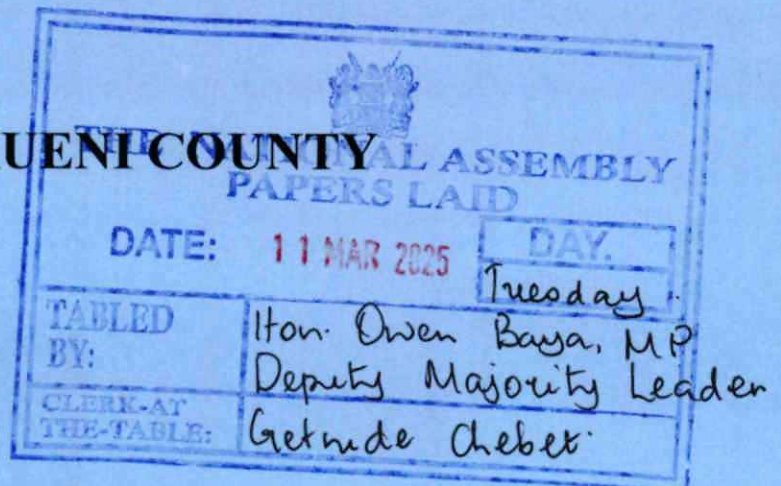 UENI COUNTY
THE NATIONAL ASSEMBLY
PAPERS LAID
DATE: 11 MAR 2025 DAY.
Tuesday.
TABLED BY: Hon. Owen Baya, MP
Deputy Majority Leader
CLERK-AT THE-TABLE: Getrude Chebet.